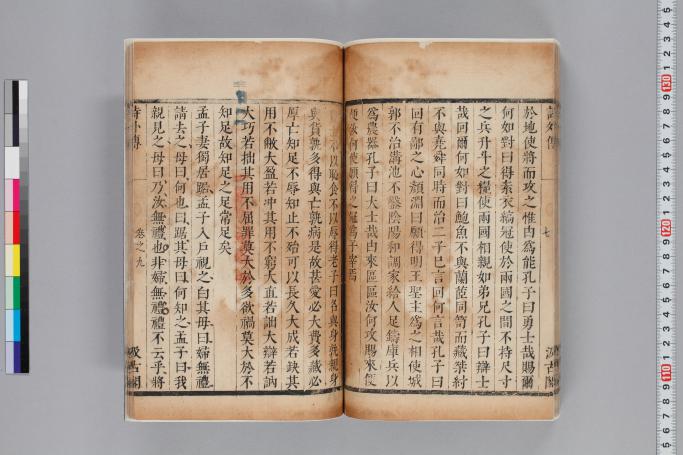 詩外傳 七 汲古閣
於地使將而攻之惟由爲能孔子曰勇士哉賜爾
何如對曰得素衣縞冠使於兩國之間不持尺寸
之兵升斗之糧使兩國相親如弟兄孔子曰辯士
哉回爾何如對曰鮑魚不與蘭茝同笥而藏桀紂
不與堯舜同時而治二子已言回何言哉孔子曰
回有鄙之心顏淵曰願得明王聖主爲之相使城
郭不治溝池不鑿陰陽和調家給人足鑄庫兵以
爲農器孔子曰大士哉由來區區汝何攻賜來便
便汝何使願得之冠爲子宰焉
士不以恥食不以辱得老子曰名與身孰親身
與貨孰多得與亡孰病是故甚愛必大費多藏必
厚亡知足不辱知止不殆可以長久大成若缺其
用不敝大盈若冲其用不窮大直若詘大辯若訥
大巧若拙其用不屈罪莫大於多欲禍莫大於不
知足故知足之足常足矣
孟子妻獨居踞孟子入戶視之白其母曰婦無禮
請去之母曰何也曰踞其母曰何知之孟子曰我
親見之母曰乃汝無禮也非婦無禮禮不云乎將
詩外傳 卷之九 汲古閣